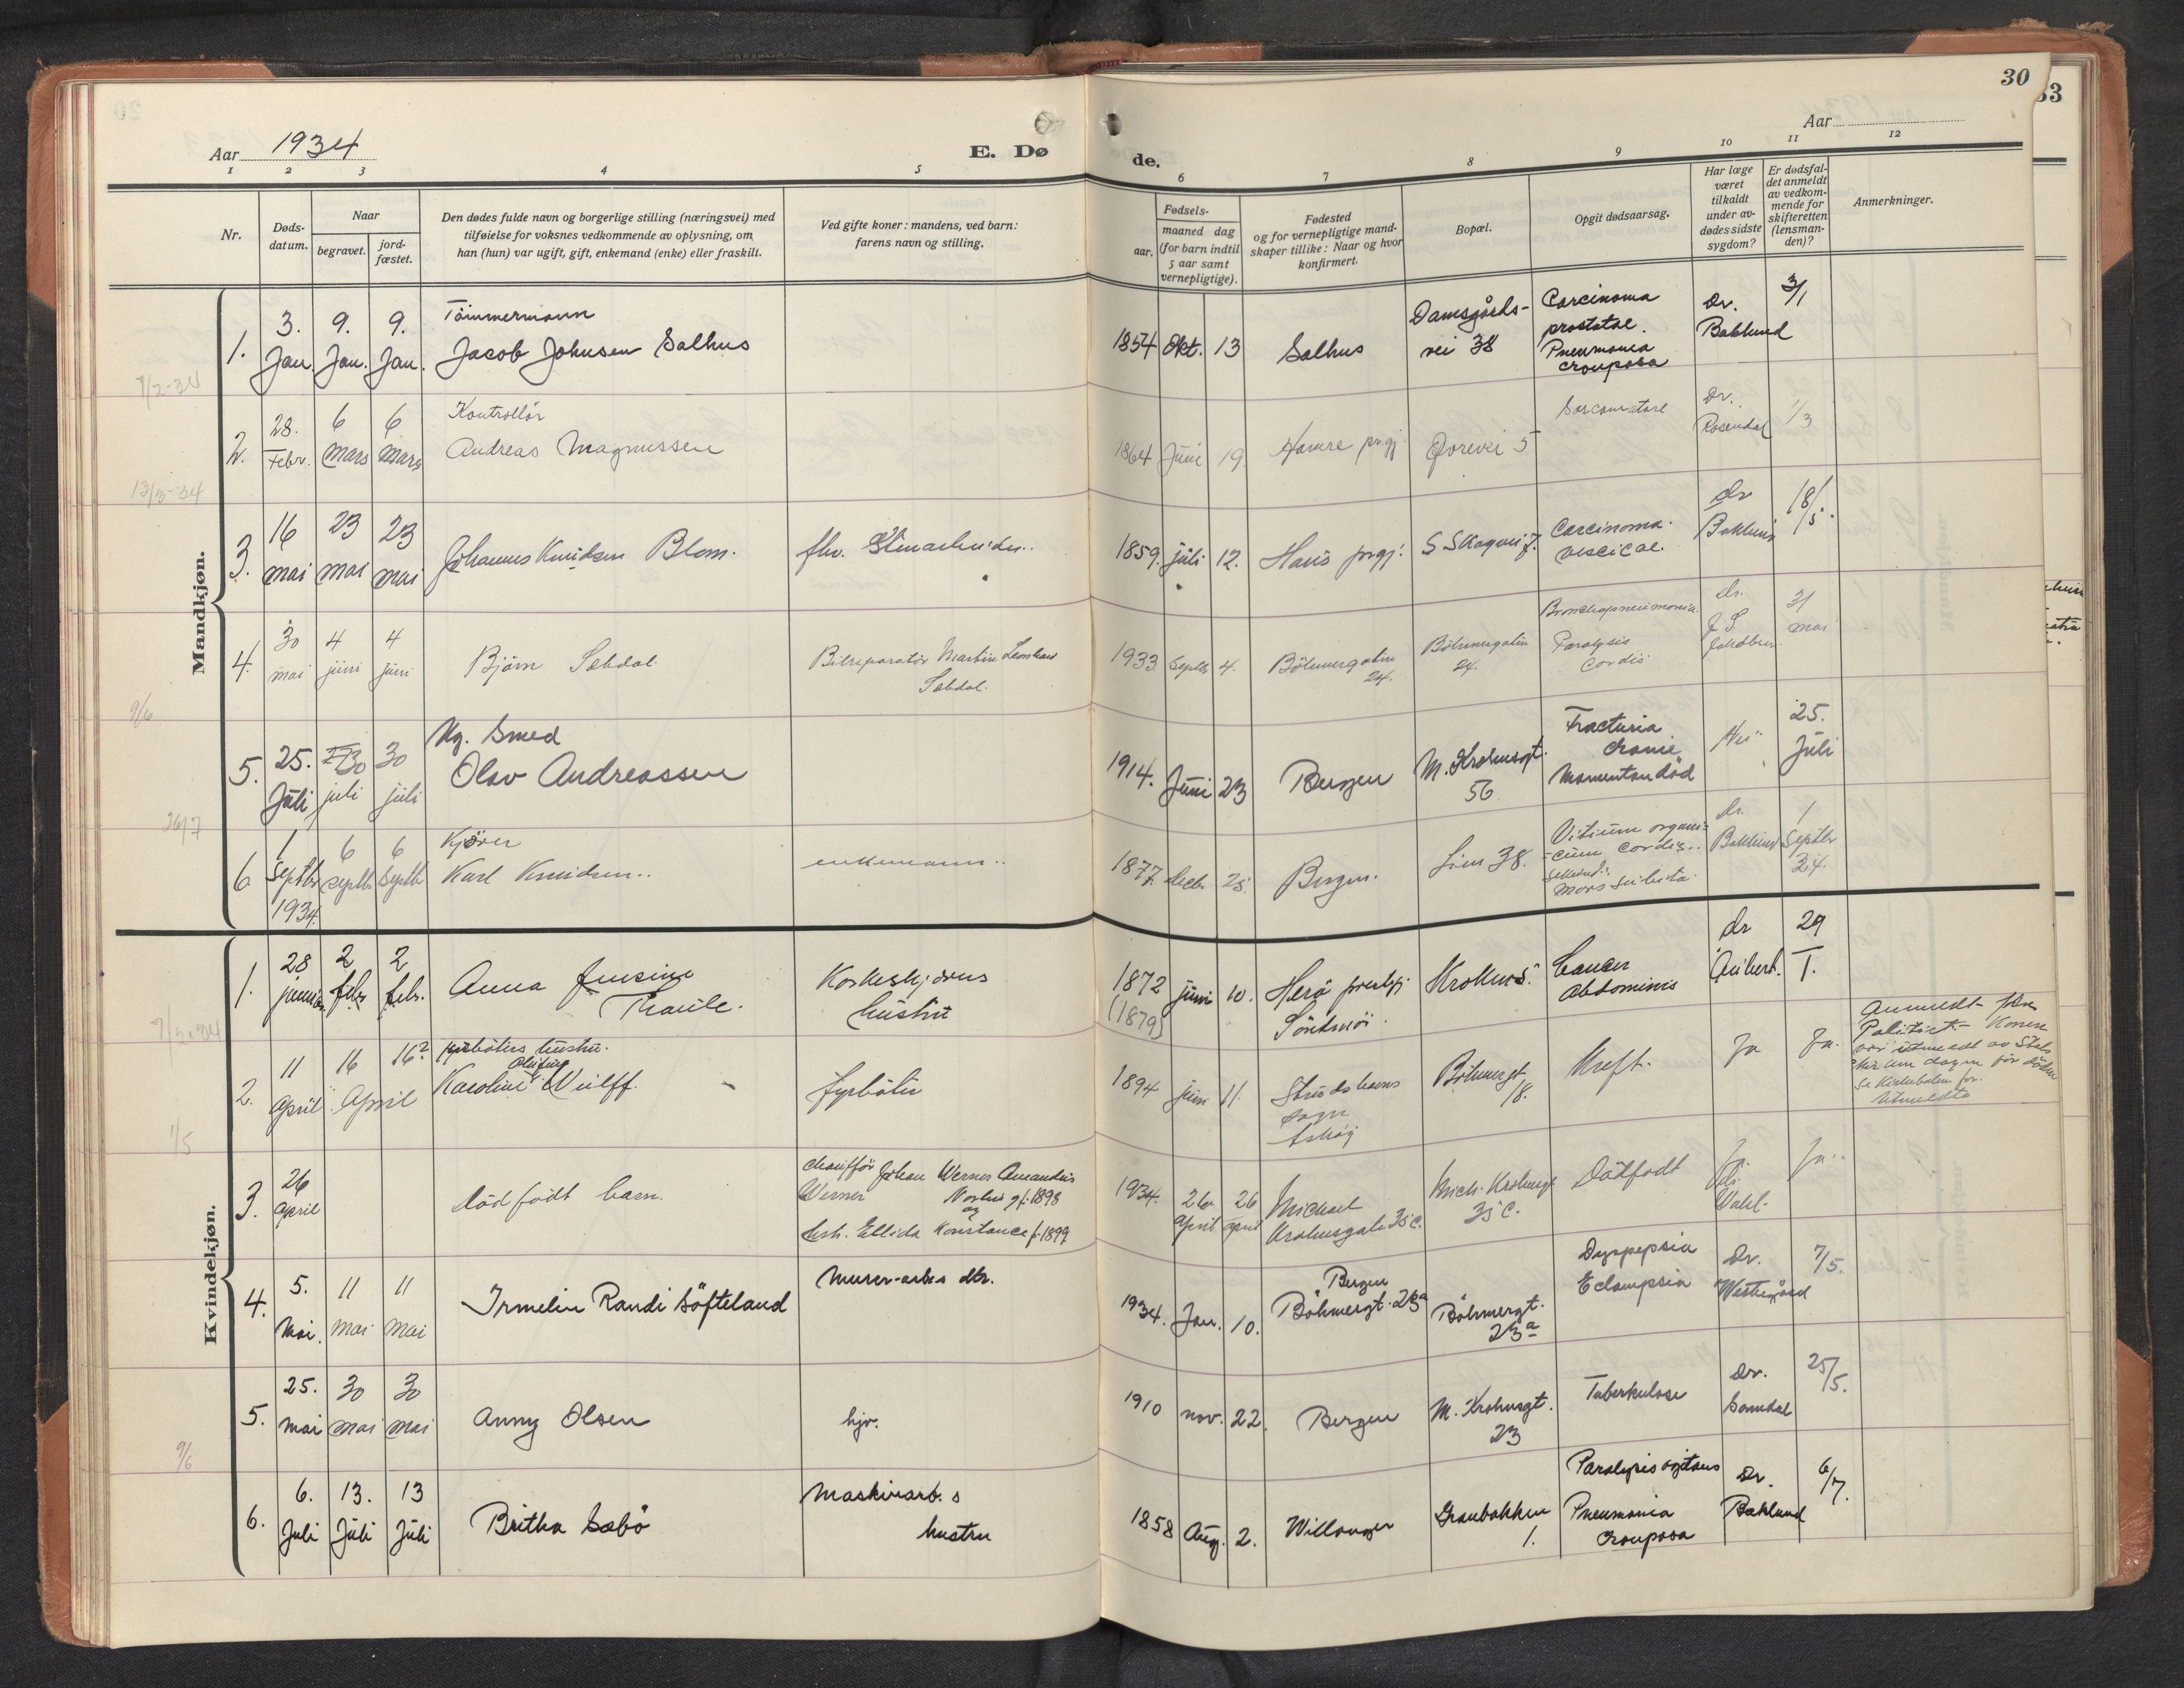 30
33
Aar 1934
E. Dø
de.
Aar
1 2 3 4 5
6 7 8 9 10 11 12
Nr.
Døds-
datum.
Naar
begravet.
jord-
fæstet.
Den dødes fulde navn og borgerlige stilling (næringsvei) med
tilføielse for voksnes vedkommende av oplysning, om
han (hun) var ugift, gift, enkemand (enke) eller fraskilt.
Ved gifte koner: mandens, ved barn:
farens navn og stilling.
Fødsels-
aar.
maaned dag
(for barn indtil
5 aar samt
vernepligtige).
Fødested
og for vernepligtige mand-
skaper tillike: Naar og hvor
konfirmert.
Bopæl.
Opgit dødsaarsag.
Har læge
været
tilkaldt
under av-
dødes sidste
sygdom?
Er dødsfal-
det anmeldt
av vedkom-
mende for
skifteretten
(lensman-
den)?
Anmerkninger.
Mandkjøn.
7/2-34
1.
3. Jan.
9. Jan.
9. Jan.
Tömmermann
Jacob Johnsen Salhus
1854 Okt. 13
Salhus
Damsgårds-
vei 38
Carcinoma
prostatae.
Pneumonia
crouposa
Dr.
Baklund
3/1
13/3-34
2.
28. Febr.
6 mars
6 mars
Kontrollör
Andreas Magnussen
1864 Juni 19
Hamre prgj.
5
Dr.
Rosendal
1/3
3.
16 mai
23 mai
23 mai
Johannes Knudsen Blom.
1859. juli 12.
prgj.
Carcinoma
vescicae.
dr
Baklund
18/5.
4.
30 mai
4 juni
4 juni
Bjørn Sebdal
Bilreparatör Martin
Sebdal.
1933 Septbr 4.
Böhmergaten
24.
Böhmergaten
24.
Bronchopneumonia.
Paralysis
Cordis
Dr.
31
mai
9/6
5.
25. Juli
30 juli
30 juli
Ug. Smed
Olav Andreassen
1914. Juni 23
Bergen
M. Krohnsgt.
56
Fracturia
cranie
Momentan död
Nei
25.
Juli
26/7
6.
1 Septbr 1934.
6 septbr
6 Septbr
Kjörer
Karl Knudsen..
enkemann..
1877. decbr 25.
Bergen.
Lien 38.
Vitium organi-
cum cordis..
Mors subita.
dr.
Baklund
1
Septbr
34.
Kvindekjøn.
1.
28 januar
2 febr
2 febr.
Anna Jensine
Thaule.
hustru
1872
(1879)
juni 10.
Herö prestgj.
Söndmör.
Cancer
abdominis
dr
29
1.
2.
11 April
16 April
16 2
fyrböters hustru.
Karoline Wulff.
fyrböter
1894 juni 11.
sogn
Askøy
Böhmergt.
18.
Kreft.
Ja
Ja.
Anmeldt
dagen för döden
Utmeldte
1/5
3.
26 April
död födt barn.
chaufför Johan Werner Amandus
Werner f. 1898
og
Ellida Konstance f. 1899
1934. 26 April 26 April
Michael
Krohnsgate 35 c.
Mich. Krohnsgt
35 c.
Dödfödt
Ja
4.
5. Mai.
11 Mai
11 Mai
Irmelin Randi Söfteland
Murer-arbs dtr.
1934. Jan. 10.
Bergen
Böhmergt. 23a
Böhmergt.
23a
Dyspepsia
Eclampsia
Dr.
Westergård
7/5.
5.
25. Mai
30 Mai
30 Mai
Anny Olsen
hjv.
1910 nov. 22.
Bergen
M. Krohnsgt.
23
Tuberkulose
Dr.
Samdal
25/5.
9/6
6.
6. Juli
13. Juli
13 Juli
Britha Sæbö
Maskinarb. s
hustru
1858 Aug. 2.
Willanger
Granbakken
1.
Paralysis agitans
Pneumonia
crouposa
Dr.
Baklund
6/7.